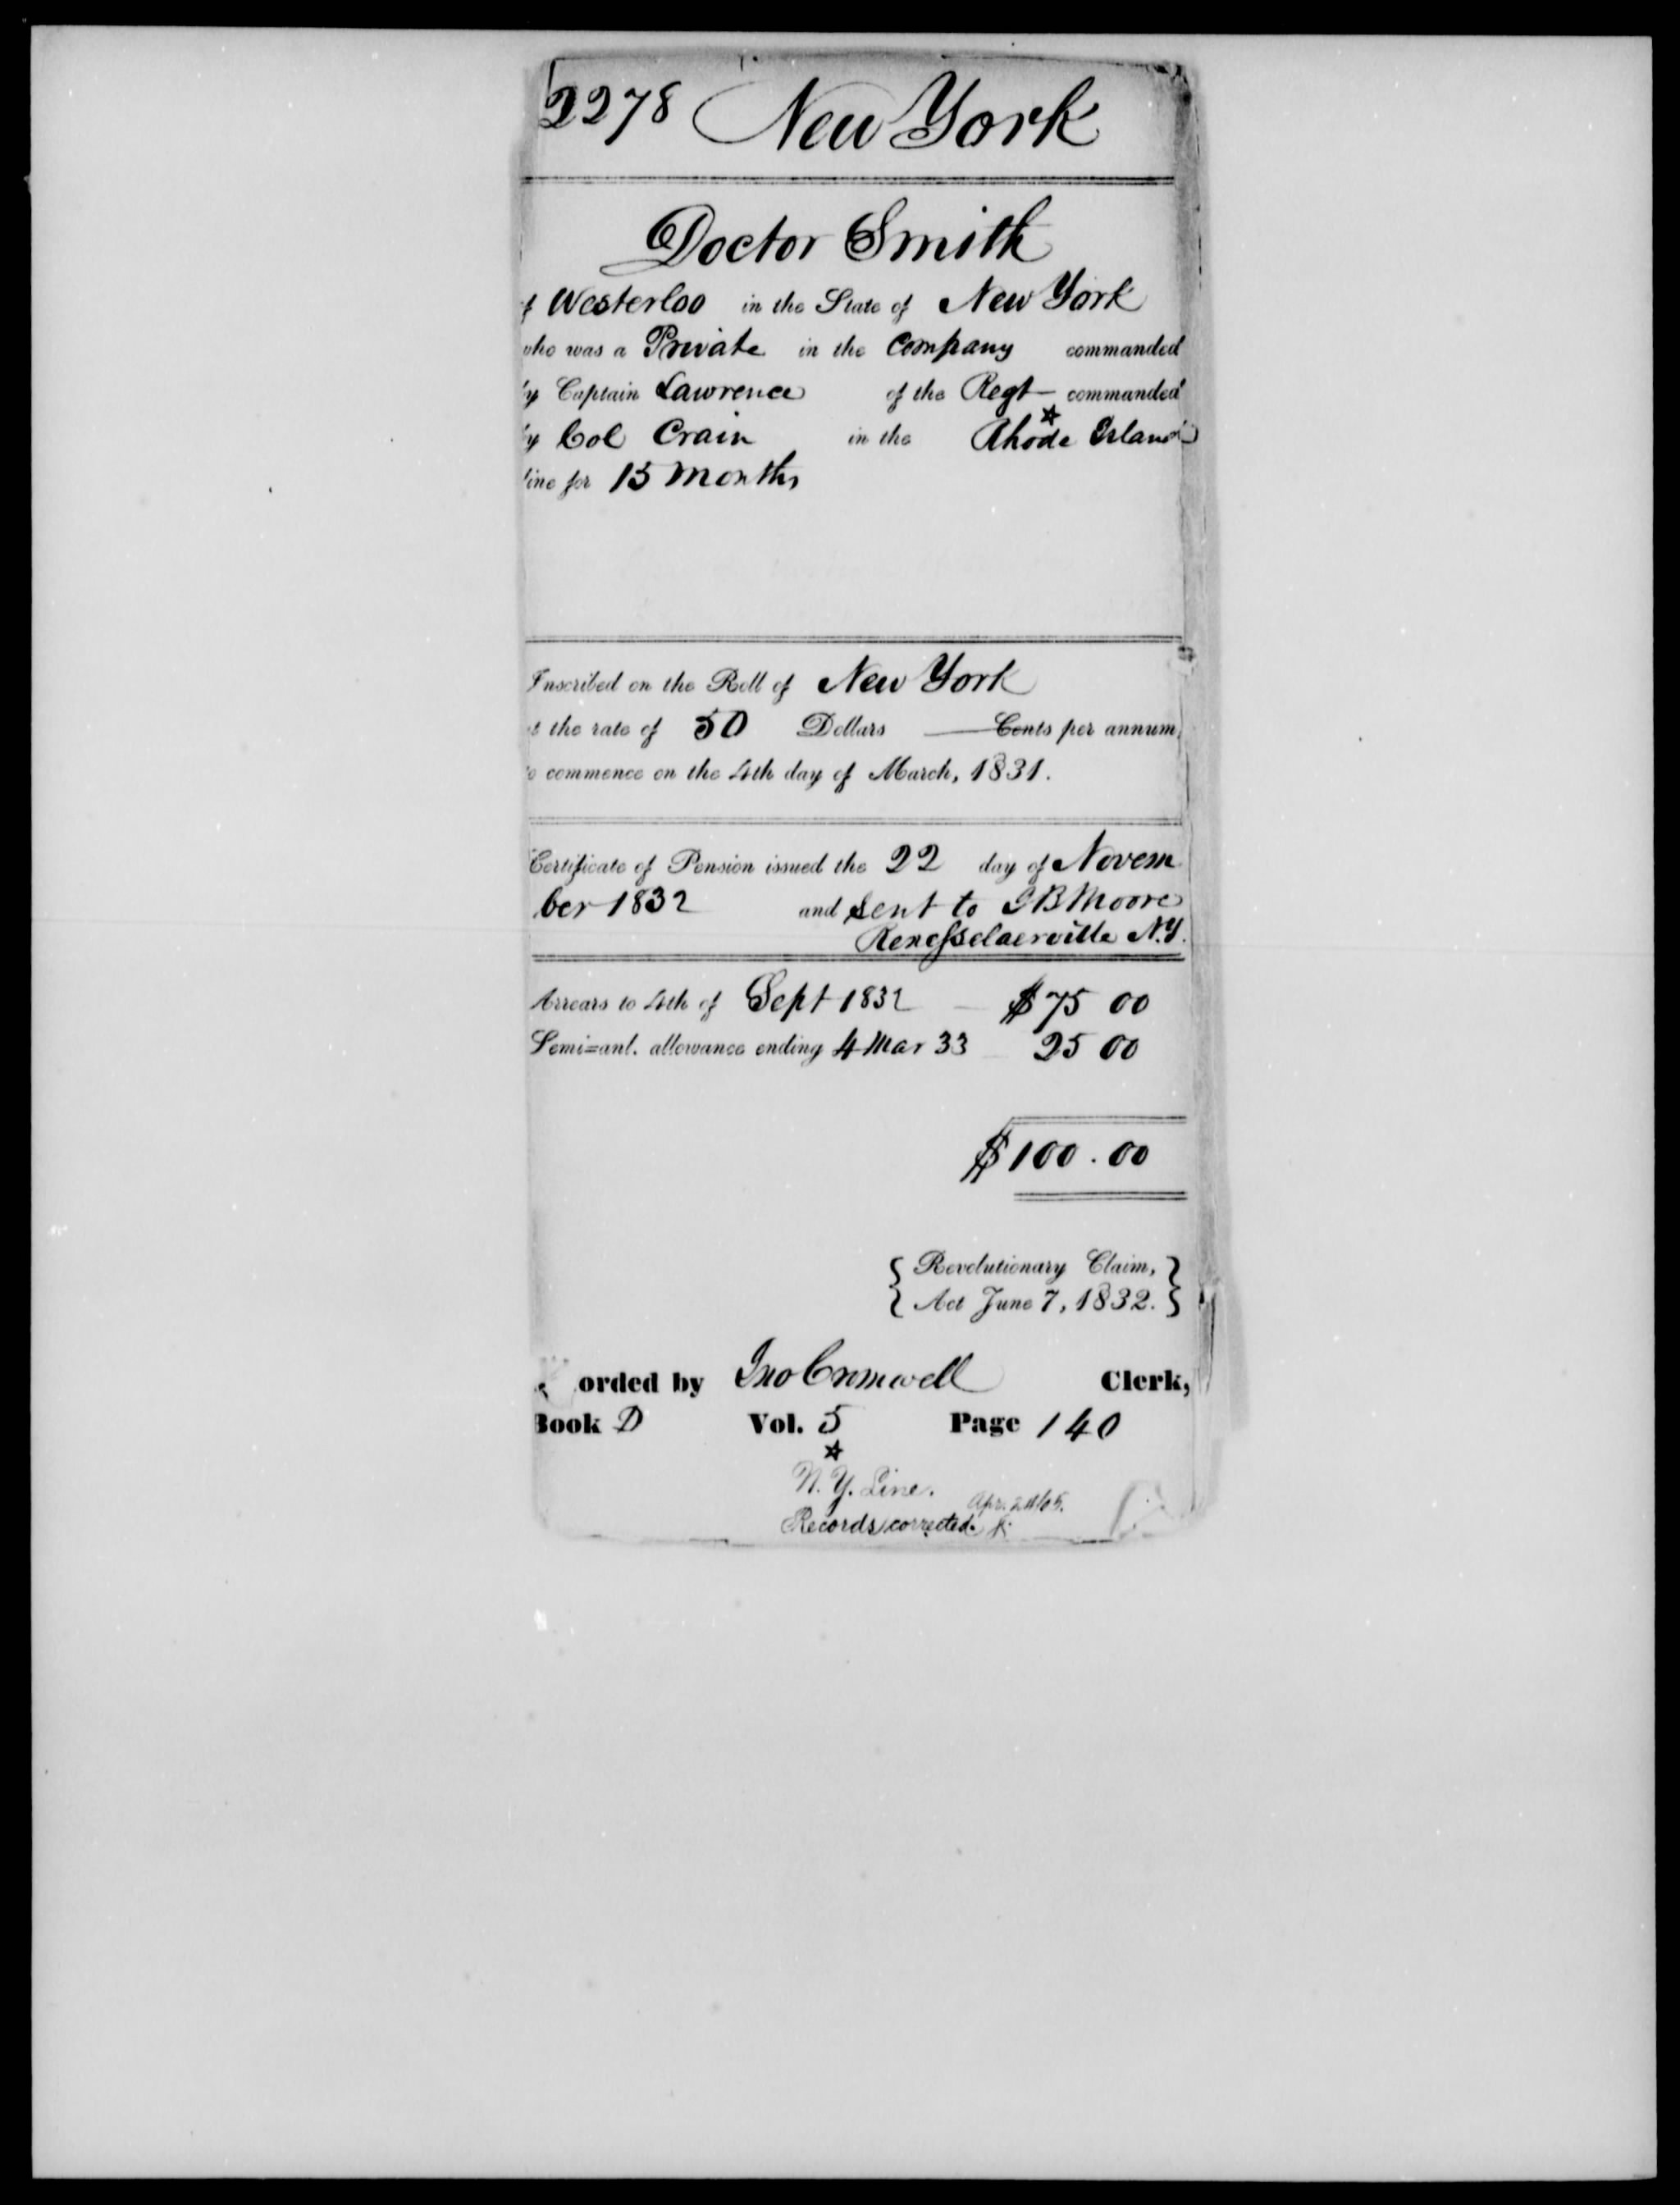 2278 New York
Doctor Smith
f Westerloo in the State of New York
who was a Private in the Company commanded
by Captain Lawrence of the Regt commanded
by Col Crain in the Rhode Island ☆
line for 15 Months
Inscribed on the Roll of New York
at the rate of 50 Dollars — Cents per annum,
to commence on the 4th day of March, 1831.
Certificate of Pension issued the 22 day of Novem
ber 1832 and sent to I B Moore
Renesselaerville N.Y.
Arrears to 4th of Sept 1832 $75 00
Semi=anl. allowance ending 4 Mar 33 25 00
$100.00
{ Revolutionary Claim, }
{ Act June 7, 1832. }
orded by Jno Cromwell Clerk,
Book D Vol. 5 Page 140
☆
N.Y. Line.
Records corrected. Apr. 24/05.